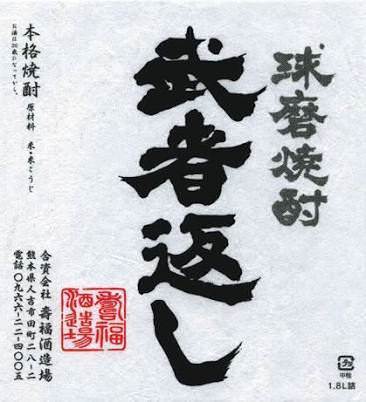 球磨焼酎
武者返し
本格焼酎
お酒は20歳になってから。
原材料 米・米こうじ
合資会社 壽福酒造場
熊本県人吉市田町二八-二
電話〇九六六-二二-四〇〇五
壽福
酒造場
甲種
1.8L詰